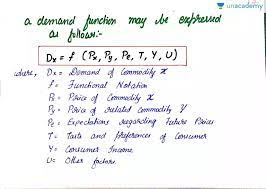 unacademy
a demand function may be expressed
as follows:-
Dx = f (Px, Py, Pe, T, Y, U)
where, Dx = Demand of Commodity x
f = Functional Notation
Px = Price of Commodity x
Py = Price of related Commodity Y
Pe = Expectations regarding Future Prices
T = Taste and preferences of Consumer
Y = Consumer Income
U = Other factors